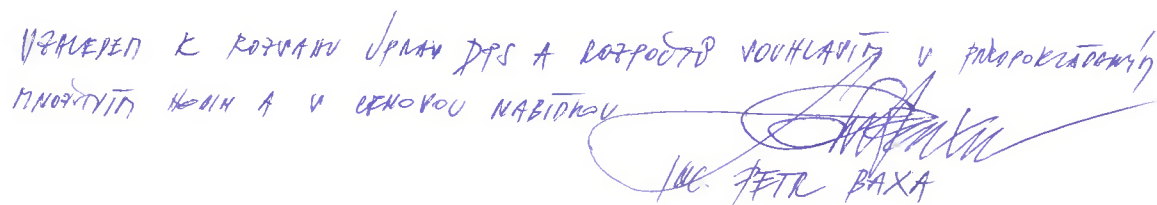 VZHLEDEM K ROZSAHU ÚPRAV DPS A ROZPOČTŮ SOUHLASÍM S PŘEDPOKLÁDANÝM
MNOŽSTVÍM HODIN A S CENOVOU NABÍDKOU
ING. PETR BAXA